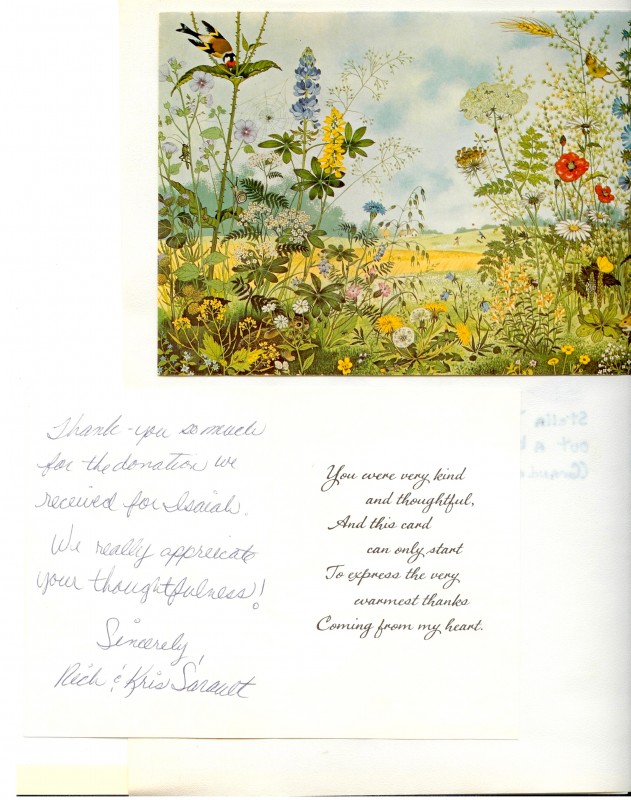 Thank-you so much
for the donation we
received for Isaiah.
We really appreicate
your thoughtfulness!
Sincerely,
Rich & Kris Sarault
You were very kind
and thoughtful,
And this card
can only start
To express the very
warmest thanks
Coming from my heart.